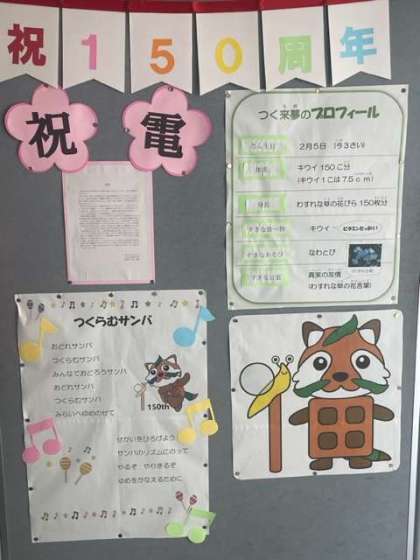 祝150周年
祝電
つく来夢のプロフィール
たん生日
2月5日 (93さい)
体重
キウイ 150こ分
(キウイ1こは7.5cm)
身長
わすれな草の花びら 150枚分
すきな食べ物
キウイ
すきなあそび
なわとび
すきな言葉
真実の友情
(わすれな草の花言葉)
つくらむサンバ
おどれサンバ
つくらむサンバ
みんなでおどろうサンバ
おどれサンバ
つくらむサンバ
みらいへゆめのせて
150th
せかいをひろげよう
サンバのリズムにのって
やるぞ やりきるぞ
ゆめをかなえるために